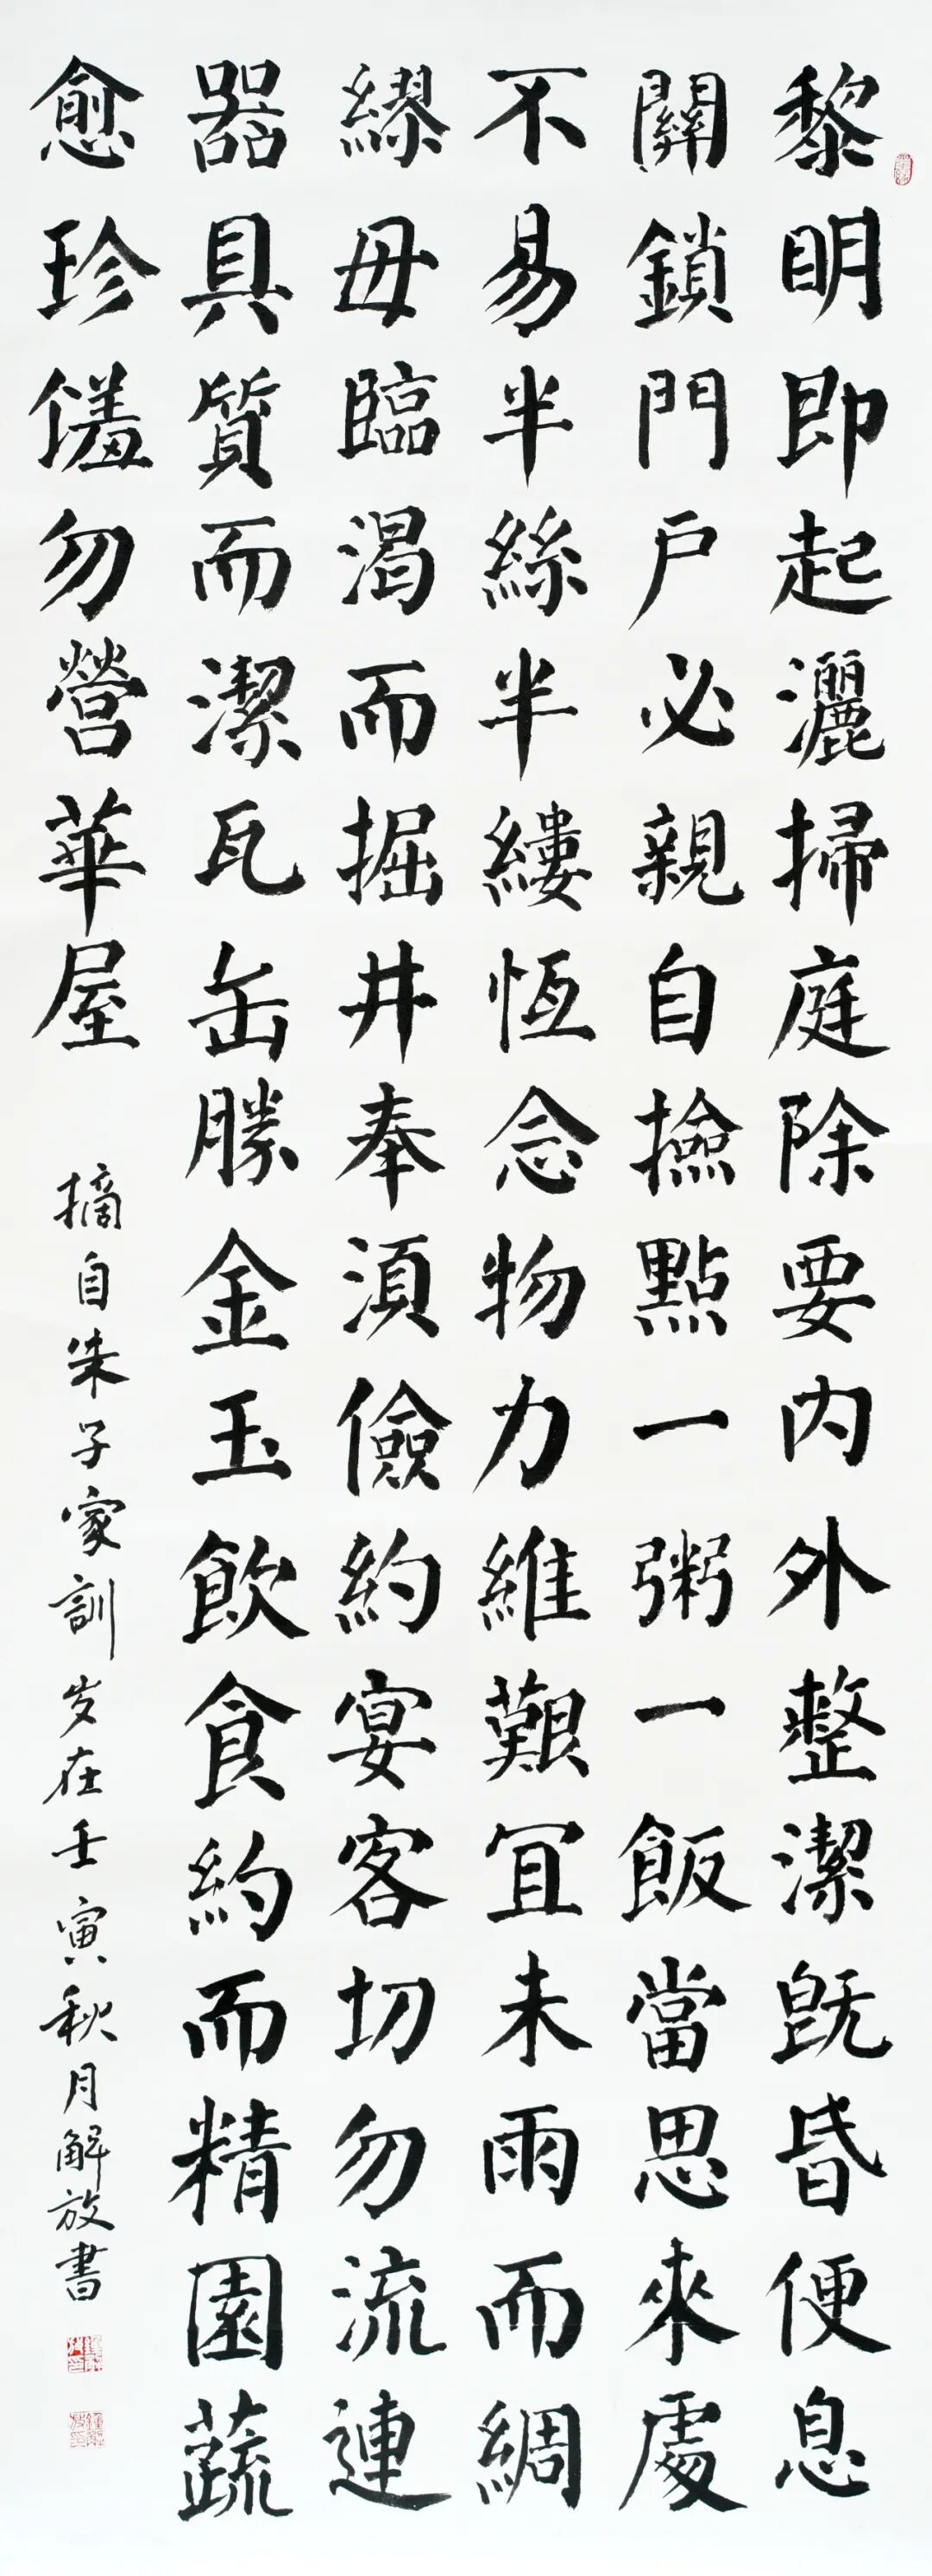 黎明即起灑掃庭除要内外整潔既昏便息
關鎖門戶必親自撿點一粥一飯當思來處
不易半絲半縷恆念物力維艱宜未雨而綢
繆毋臨渴而掘井奉須儉約宴客切勿流連
器具質而潔瓦缶勝金玉飲食約而精園蔬
愈珍饈勿營華屋
摘自朱子家訓岁在壬寅秋月解放書